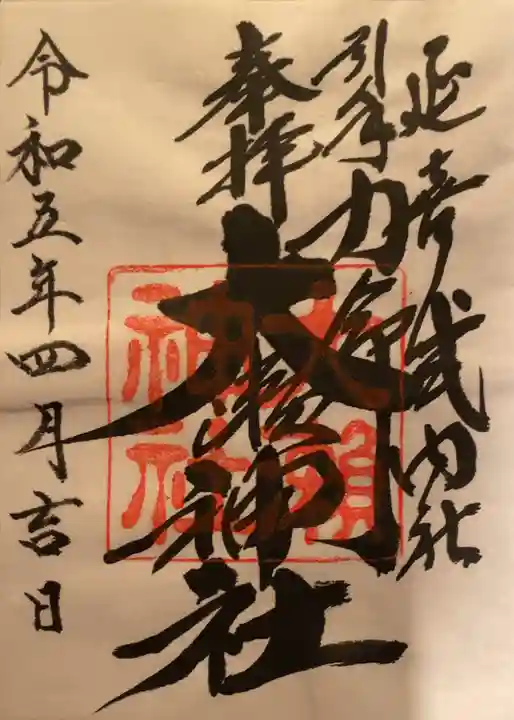 延喜式内社
引手力命
奉拝
大瀬神社
令和五年四月吉日
大瀬
神社